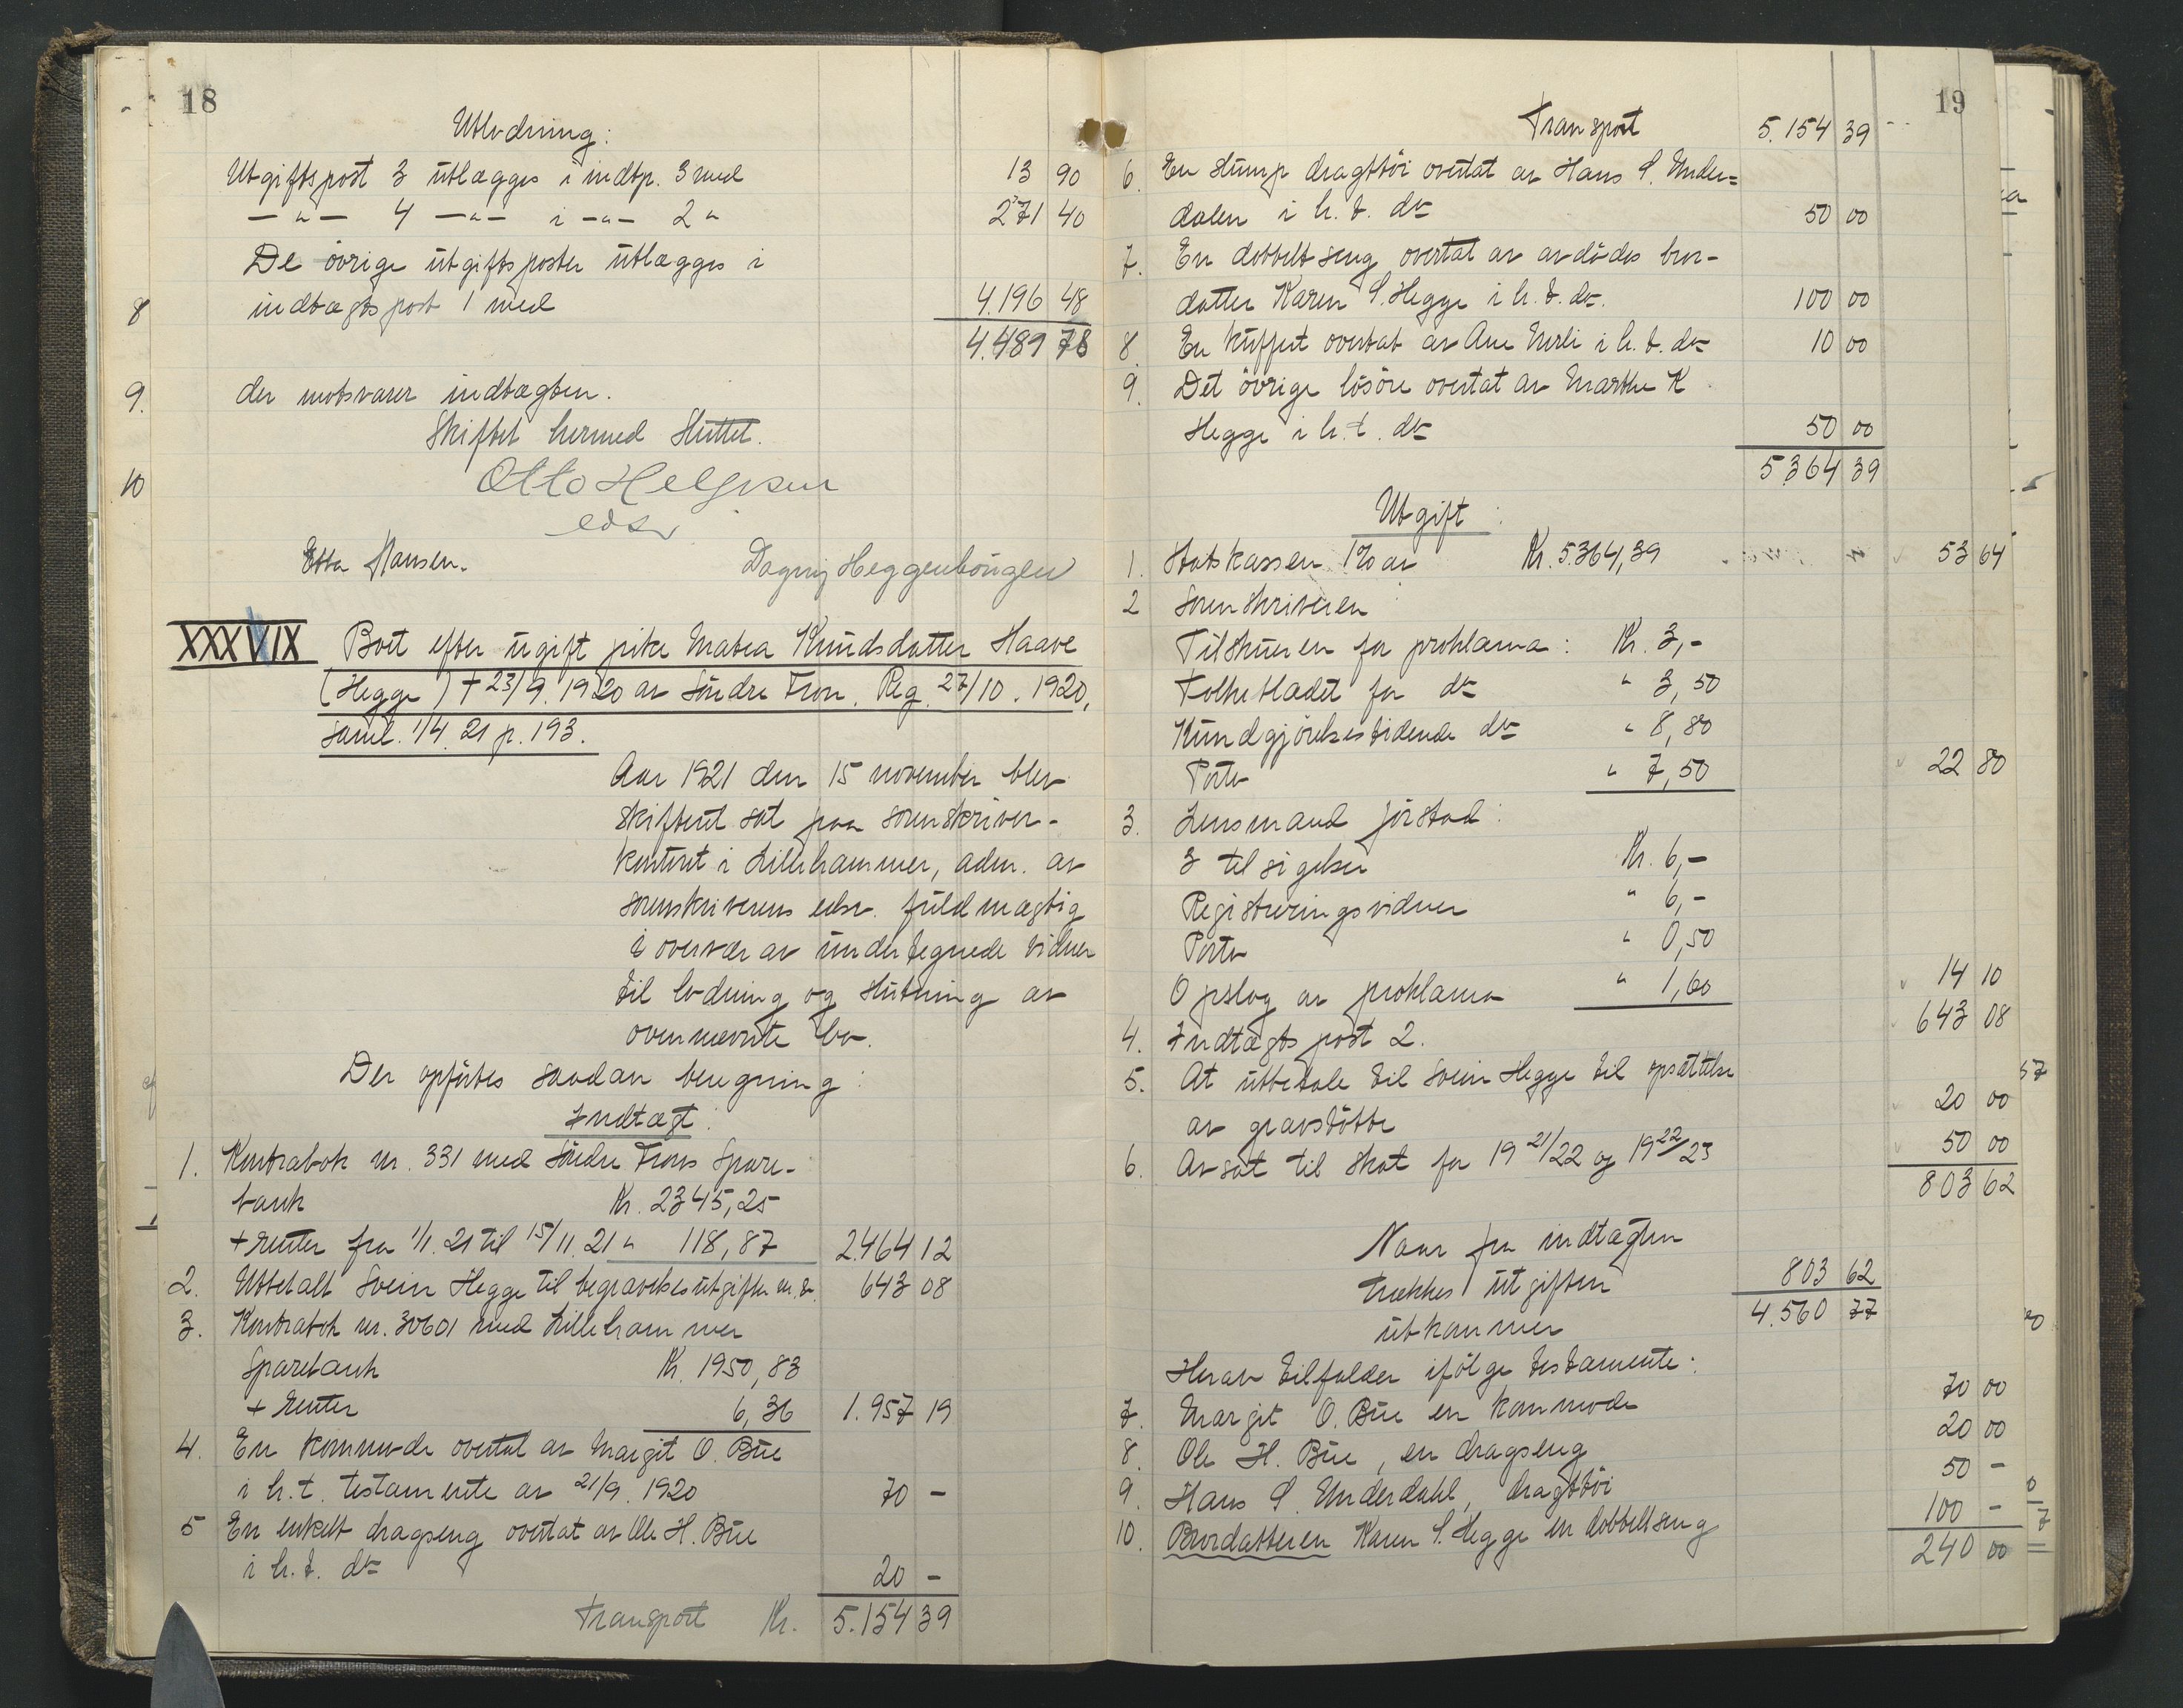 18
Utlodning:
Utgiftspost 3 utlægges i indtp. 3 med 13 90
— " — 4 — " — i — " — 2 " 271 40
De övrige utgiftsposter utlægges i
indtægtspost 1 med 4.196 48
4.489 78
der motsvarer indtægten.
Skiftet hermed sluttet.
Otto Helgesen
edsv
Etta Hansen.
Dagny Heggenhougen
XXXVIX Boet efter ugift pike Matea Knudsdatter Haave
(Hegge) † 23/9. 1920 av Söndre Fron. Reg. 27/10. 1920,
saml. 1/4. 21 p. 193.
Aar 1921 den 15 november blev
skifteret sat paa sorenskriver-
kontoret i Lillehammer, adm. av
sorenskriverens edsv. fuldmægtig
i overvær av undertegnede vidner
til lodning og slutning av
ovennævnte bo.
Der opförtes saadan beregning:
Indtægt:
1. Kontrabok nr. 331 med Söndre Frons Spare-
bank Kr. 2345,25
+ renter fra 1/1. 21 til 15/11. 21 " 118,87 2.464 12
2. Utbetalt Svein Hegge til begravelsesutgifter m.v. 643 08
3. Kontrabok nr. 30601 med Lillehammer
Sparebank Kr. 1950,83
+ renter 6,36 1.957 19
4. En kommode overtat av Margit O. Bue
i h.t. testamente av 21/9. 1920 70 —
5 En enkelt dragseng overtat av Ole H. Bue
i h.t. do 20 —
Transport Kr. 5.154 39
8
9.
10
19
Transport 5.154 39
6. En stump dragttöi overtat av Hans S. Under=
dalen i h.t. do 50 00
7. En dobbelt seng overtat av avdödes bror-
datter Karen S. Hegge i h.t. do. 100 00
8. En kuffert overtat av Ane Nerli i h.t. do 10 00
9. Det övrige lösöre overtat av Marthe K.
Hegge i h.t. do 50 00
5364 39
Utgift:
1. Statskassen 1% av Kr. 5.364,39 53 64
2 Sorenskriveren
Tilskueren for proklama: Kr. 3,-
Folkebladet for do " 3,50
Kundgjörelsestidende do " 8,80
Porto " 7,50 22 80
3. Lensmand Jörstad:
3 tilsigelser Kr. 6,—
Registreringsvidner " 6,—
Porto " 0,50
Opslag av proklama " 1,60 14 10
4. Indtægtspost 2. 643 08
5. At utbetale til Svein Hegge til opsættelse
av gravstötte 20 00
6. Avsat til skat for 1921/22 og 1922/23 50 00
803 62
Naar fra indtægten
trækkes utgiften 803 62
utkommer 4.560 77
Herav tilfalder ifölge testamente:
7. Margit O. Bue en kommode 70 00
8. Ole H. Bue, en dragseng 20 00
9. Hans S. Underdahl, dragttöi 50 —
10. Brordatteren Karen S. Hegge en dobbeltseng 100 —
240 00